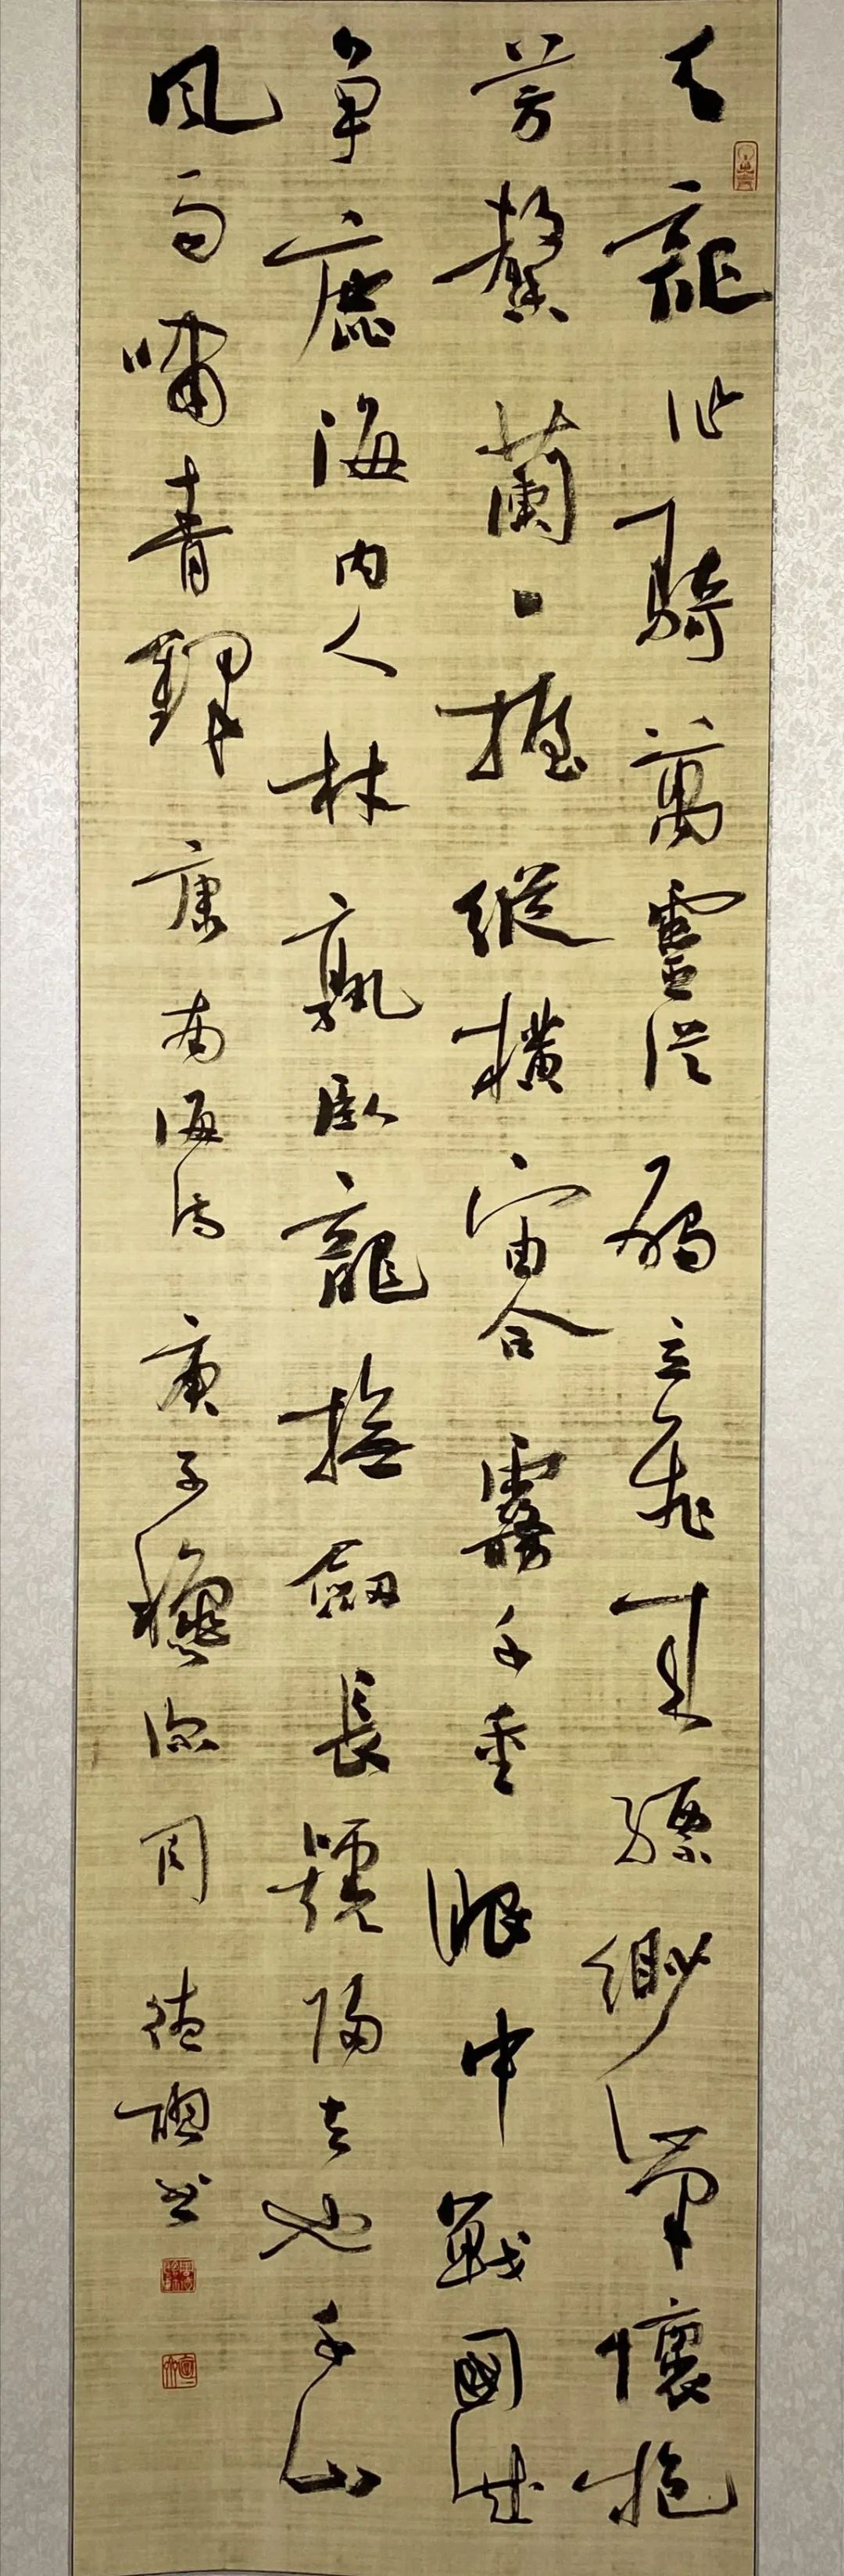 天龍作騎萬靈從獨立飛來縹緲峯懷抱
芳馨蘭一握縱橫宙合霧千重眼中戰國成
爭鹿海內人材孰臥龍撫劒長號歸去也千山
風雨嘯青鋒 康南海詩 庚子穐深周德聰書